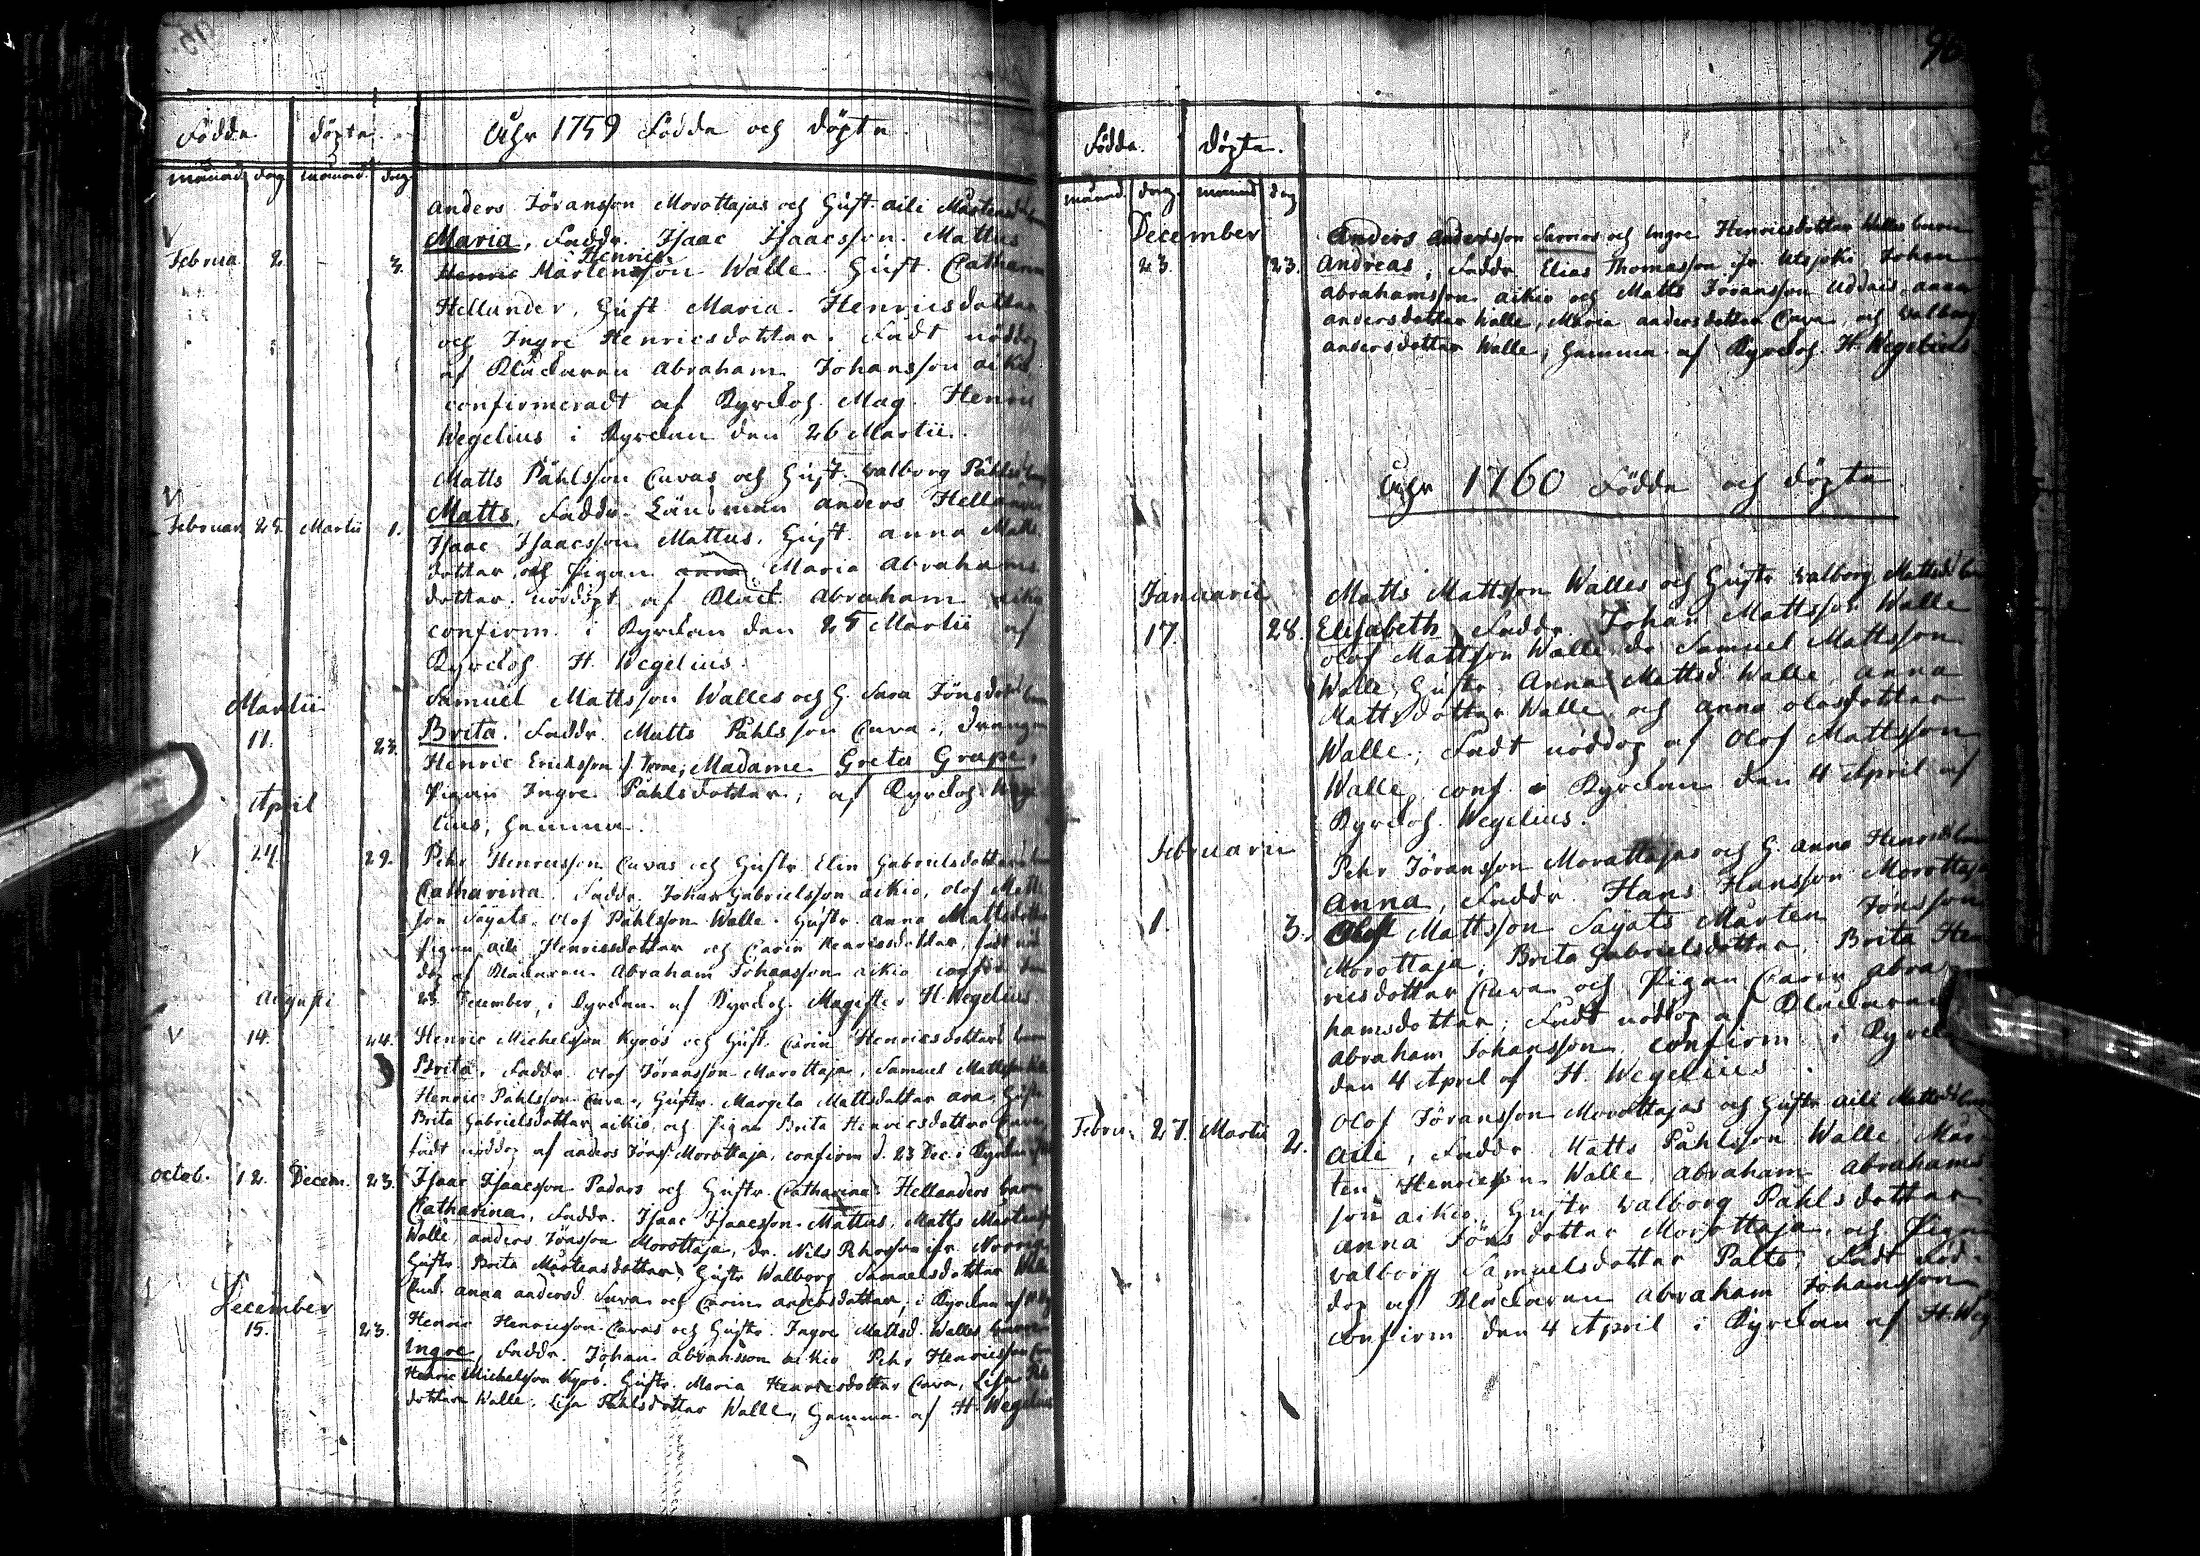 Födde. döpte. Åhr 1759 Födde och döpte.
månad dag månad dag
Anders Jöransson Morottajas och Hust. Aili Mårtensd
Februa 2. – 3. Maria, Faddr. Isaac Isaacsson Mattus
Henrics
Henric Mårtensson Walle Hust. Catharina
Hellander, Hust Maria Henricsdotter
och Ingre Henricsdotter. Fadt nöddop
af Klockaren Abraham Johansson Aikio
confirmeradt af Kyrckoh. Mag. Henric
Wegelius i Kyrckan den 26 Martii.
Matts Påhlsson Cuvas och Hust. Walborg Påhlsd
Februar 25. Martii 1. Matts, Faddr. Länsman Anders Hellander
Isaac Isaacsson Mattus, Hust. Anna Matts
dotter, och Pigan Anna Maria Abrahams
dotter. nöddöpt af Klock. Abraham Aikio
confirm. i Kyrckan den 25 Martii af
Kyrckoh. H. Wegelius.
Martii Samuel Mattsson Walles och H. Sara Jönsdot
11. 23. Brita. Faddr. Matts Påhlsson Cuva, drengen
Henric Ericksson f. Torne, Madame Greta Grape,
April Pigan Ingre Påhlsdotter, af Kyrckoh. Wege
lius, hemma.
24. 29. Pehr Henricsson Cuvas och Hustr Elin Gabrielsdotters
Catharina. Faddr. Johan Gabrielsson Aikio, Olof Matts
son Sajets. Olof Påhlsson Walle. Hustr. Anna Mattsdotter
Pigan Aili Henricsdotter och Carin Henricsdotter, fadt nöd
dop af Klockaren Abraham Johansson Aikio confir. den
Augusti 23 December, i Kyrckan af Kyrckoh. Magister H. Wegelius
14. 24. Henric Michelsson Kyrös och Hust. Carin Henricsdotters barn
Brita. Faddr. Olof Jöransson Morottaja, Samuel Mattsson
Henric Påhlsson Cuva, Hustr. Margeta Mattsdotter
Brita Gabrielsdotter Aikio, och Pigan Brita Henricsdotter Cuva,
fadt nöddop af Anders Jönss. Morottaja, confirm d. 23 Dec. i Kyrckan
Octob. 12. Decem. 23. Isaac Isaacsson Padars och Hustr. Catharina Hellanders barn
Catharina, Faddr. Isaac Isaacsson Mattus, Matts Mårtensson
Walle, Anders Jönsson Morottaja, dr. Nils Pehrsson ifr. Norrige
Hustr. Brita Mårtensdotter, Hustr Walborg Samuelsdotter Walle
Anna Andersd. Cuva och Carin Andersdotter, i Kyrckan af
December Henric Henricsson Cuvas och Hustr. Ingre Mattsd. Walles barn
15. 23. Ingre, Faddr. Johan Abramsson Aikio Pehr Henricsson
Henric Michelsson Kyrö. Hustr. Maria Henricsdotter Cuva, Lisa
dotter Walle, Lisa Påhlsdotter Walle, hemma af H. Wegelius
Födde. Döpte.
månad dag månad dag
December Anders Andersson Sarres och Ingre Henricsdotter Walles barn
23. 23. Andreas, Faddr. Elias Thomasson ifr. Utsjoki, Johan
Abrahamsson Aikio och Matts Jöransson, Anna
Andersdotter Walle, Maria Andersdotter Cuva, och Walborg
Andersdotter Walle, hemma af Kyrckoh. H. Wegelius
Åhr 1760 Födde och döpte
Januarii Matts Mattsson Walles och Hustr Walborg Mattsd
17. 28. Elisabeth, Faddr. Johan Mattsson Walle
Olof Mattsson Walle, dr. Samuel Mattsson
Walle, Hustr. Anna Mattsd. Walle, Anna
Mattsdotter Walle, och Anna Olofsdotter
Walle, Fadt nöddop af Olof Mattsson
Walle, conf. i Kyrckan den 4 April af
Kyrckoh. Wegelius.
Februarii Pehr Jöransson Morottajas och H. Anna Henricsd
1. 3. Anna, Faddr. Hans Hansson Morottaja
Olof Mattsson Sajets Mårten Jönsson
Morottaja, Brita Gabrielsdotter, Brita Hen
ricsdotter Cuva och Pigan Carin Abra
hamsdotter; Fadt nöddop af Klockaren
Abraham Johansson, confirm. i Kyrck
den 4 April af H. Wegelius
Olof Jöransson Morottajas och Hustr Aili Mattsd
Febru. 27. Martii 2. Aili, Faddr. Matts Påhlsson Walle, Mår-
ten Henricsson Walle, Abraham Abrahams
son Aikio, Hustr Walborg Påhlsdotter
Anna Jönsdotter Morottaja, och Pigan
Walborg Samuelsdotter Palto; Fadt nöd-
dop af Klockaren Abraham Johansson
confirm den 4 April i Kyrckan af H. Weg